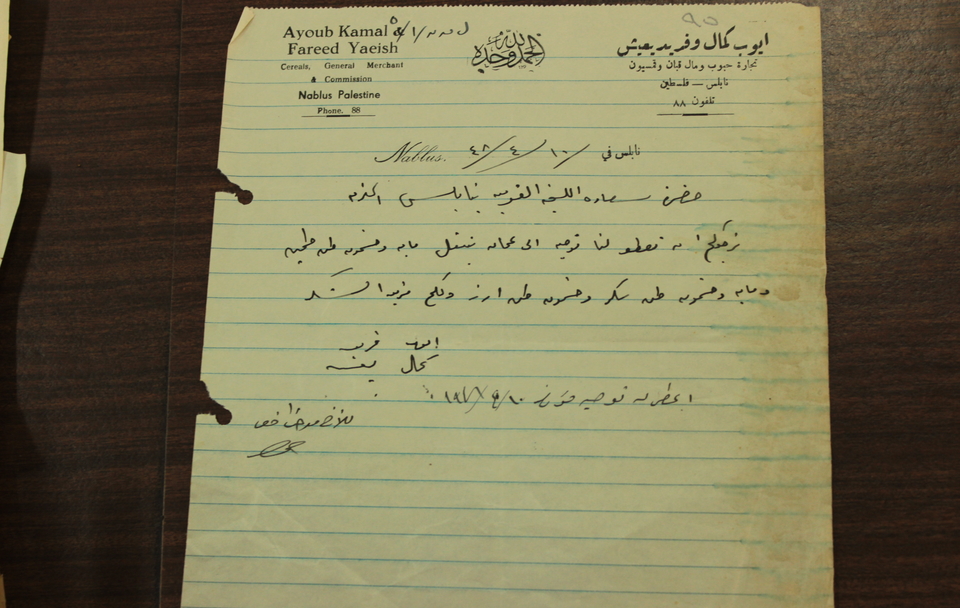 ٩٥
Ayoub Kamal &
Fareed Yaeish
Cereals, General Merchant
& Commission
Nablus Palestine
Phone. 88
الحمد لله وحده
ايوب كمال وفريد يعيش
تجارة حبوب ومال قبان وقمسيون
نابلس — فلسطين
تلفون ٨٨
Nablus. ٤٨/٤/١٠ نابلس في
حضرة سعادة اللجنة القومية بنابلس المحترمة
نرجوكم ان تعطو لنا توصية الى عمان بنقل مايه وخمسون طن طحين
ومايه وخمسون طن سكر وخمسون طن ارز ولكم مزيد الشكر
ايوب فريد
كمال يعيش
اعطي له توصية ١٠/٤/